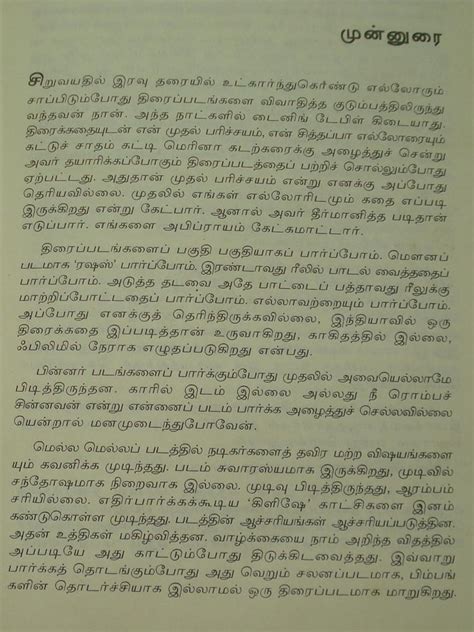 முன்னுரை
சிறுவயதில் இரவு தரையில் உட்கார்ந்துகொண்டு எல்லோரும்
சாப்பிடும்போது திரைப்படங்களை விவாதித்த குடும்பத்திலிருந்து
வந்தவன் நான். அந்த நாட்களில் டைனிங் டேபிள் கிடையாது.
திரைக்கதையுடன் என் முதல் பரிச்சயம், என் சித்தப்பா எல்லோரையும்
கூட்டுச் சாதம் கட்டி மெரினா கடற்கரைக்கு அழைத்துச் சென்று
அவர் தயாரிக்கப்போகும் திரைப்படத்தைப் பற்றிச் சொல்லும்போது
ஏற்பட்டது. அதுதான் முதல் பரிச்சயம் என்று எனக்கு அப்போது
தெரியவில்லை. முதலில் எங்கள் எல்லோரிடமும் கதை எப்படி
இருக்கிறது என்று கேட்பார். ஆனால் அவர் தீர்மானித்த படிதான்
எடுப்பார். எங்களை அபிப்ராயம் கேட்கமாட்டார்.
திரைப்படங்களைப் பகுதி பகுதியாகப் பார்ப்போம். மௌனப்
படமாக 'ரஷஸ்' பார்ப்போம். இரண்டாவது ரீலில் பாடல் வைத்ததைப்
பார்ப்போம். அடுத்த தடவை அதே பாட்டைப் பத்தாவது ரீலுக்கு
மாற்றிப்போட்டதைப் பார்ப்போம். எல்லாவற்றையும் பார்ப்போம்.
அப்போது எனக்குத் தெரிந்திருக்கவில்லை, இந்தியாவில் ஒரு
திரைக்கதை இப்படித்தான் உருவாகிறது, காகிதத்தில் இல்லை,
ஃபிலிமில் நேராக எழுதப்படுகிறது என்பது.
பின்னர் படங்களைப் பார்க்கும்போது முதலில் அவையெல்லாமே
பிடித்திருந்தன. காரில் இடம் இல்லை அல்லது நீ ரொம்பச்
சின்னவன் என்று என்னைப் படம் பார்க்க அழைத்துச் செல்லவில்லை
யென்றால் மனமுடைந்துபோவேன்.
மெல்ல மெல்லப் படத்தில் நடிகர்களைத் தவிர மற்ற விஷயங்களை
யும் கவனிக்க முடிந்தது. படம் சுவாரஸ்யமாக இருக்கிறது, முடிவில்
சந்தோஷமாக நிறைவாக இல்லை. முடிவு பிடித்திருந்தது, ஆரம்பம்
சரியில்லை. எதிர்பார்க்கக்கூடிய 'கிளிஷே' காட்சிகளை இனம்
கண்டுகொள்ள முடிந்தது. படத்தின் ஆச்சரியங்கள் ஆச்சரியப்படுத்தின.
அதன் உத்திகள் மகிழ்வித்தன. வாழ்க்கையை நாம் அறிந்த விதத்தில்
அப்படியே அது காட்டும்போது திடுக்கிடவைத்தது. இவ்வாறு
பார்க்கத் தொடங்கும்போது அது வெறும் சலனப்படமாக, பிம்பங்
களின் தொடர்ச்சியாக இல்லாமல் ஒரு திரைப்படமாக மாறுகிறது.